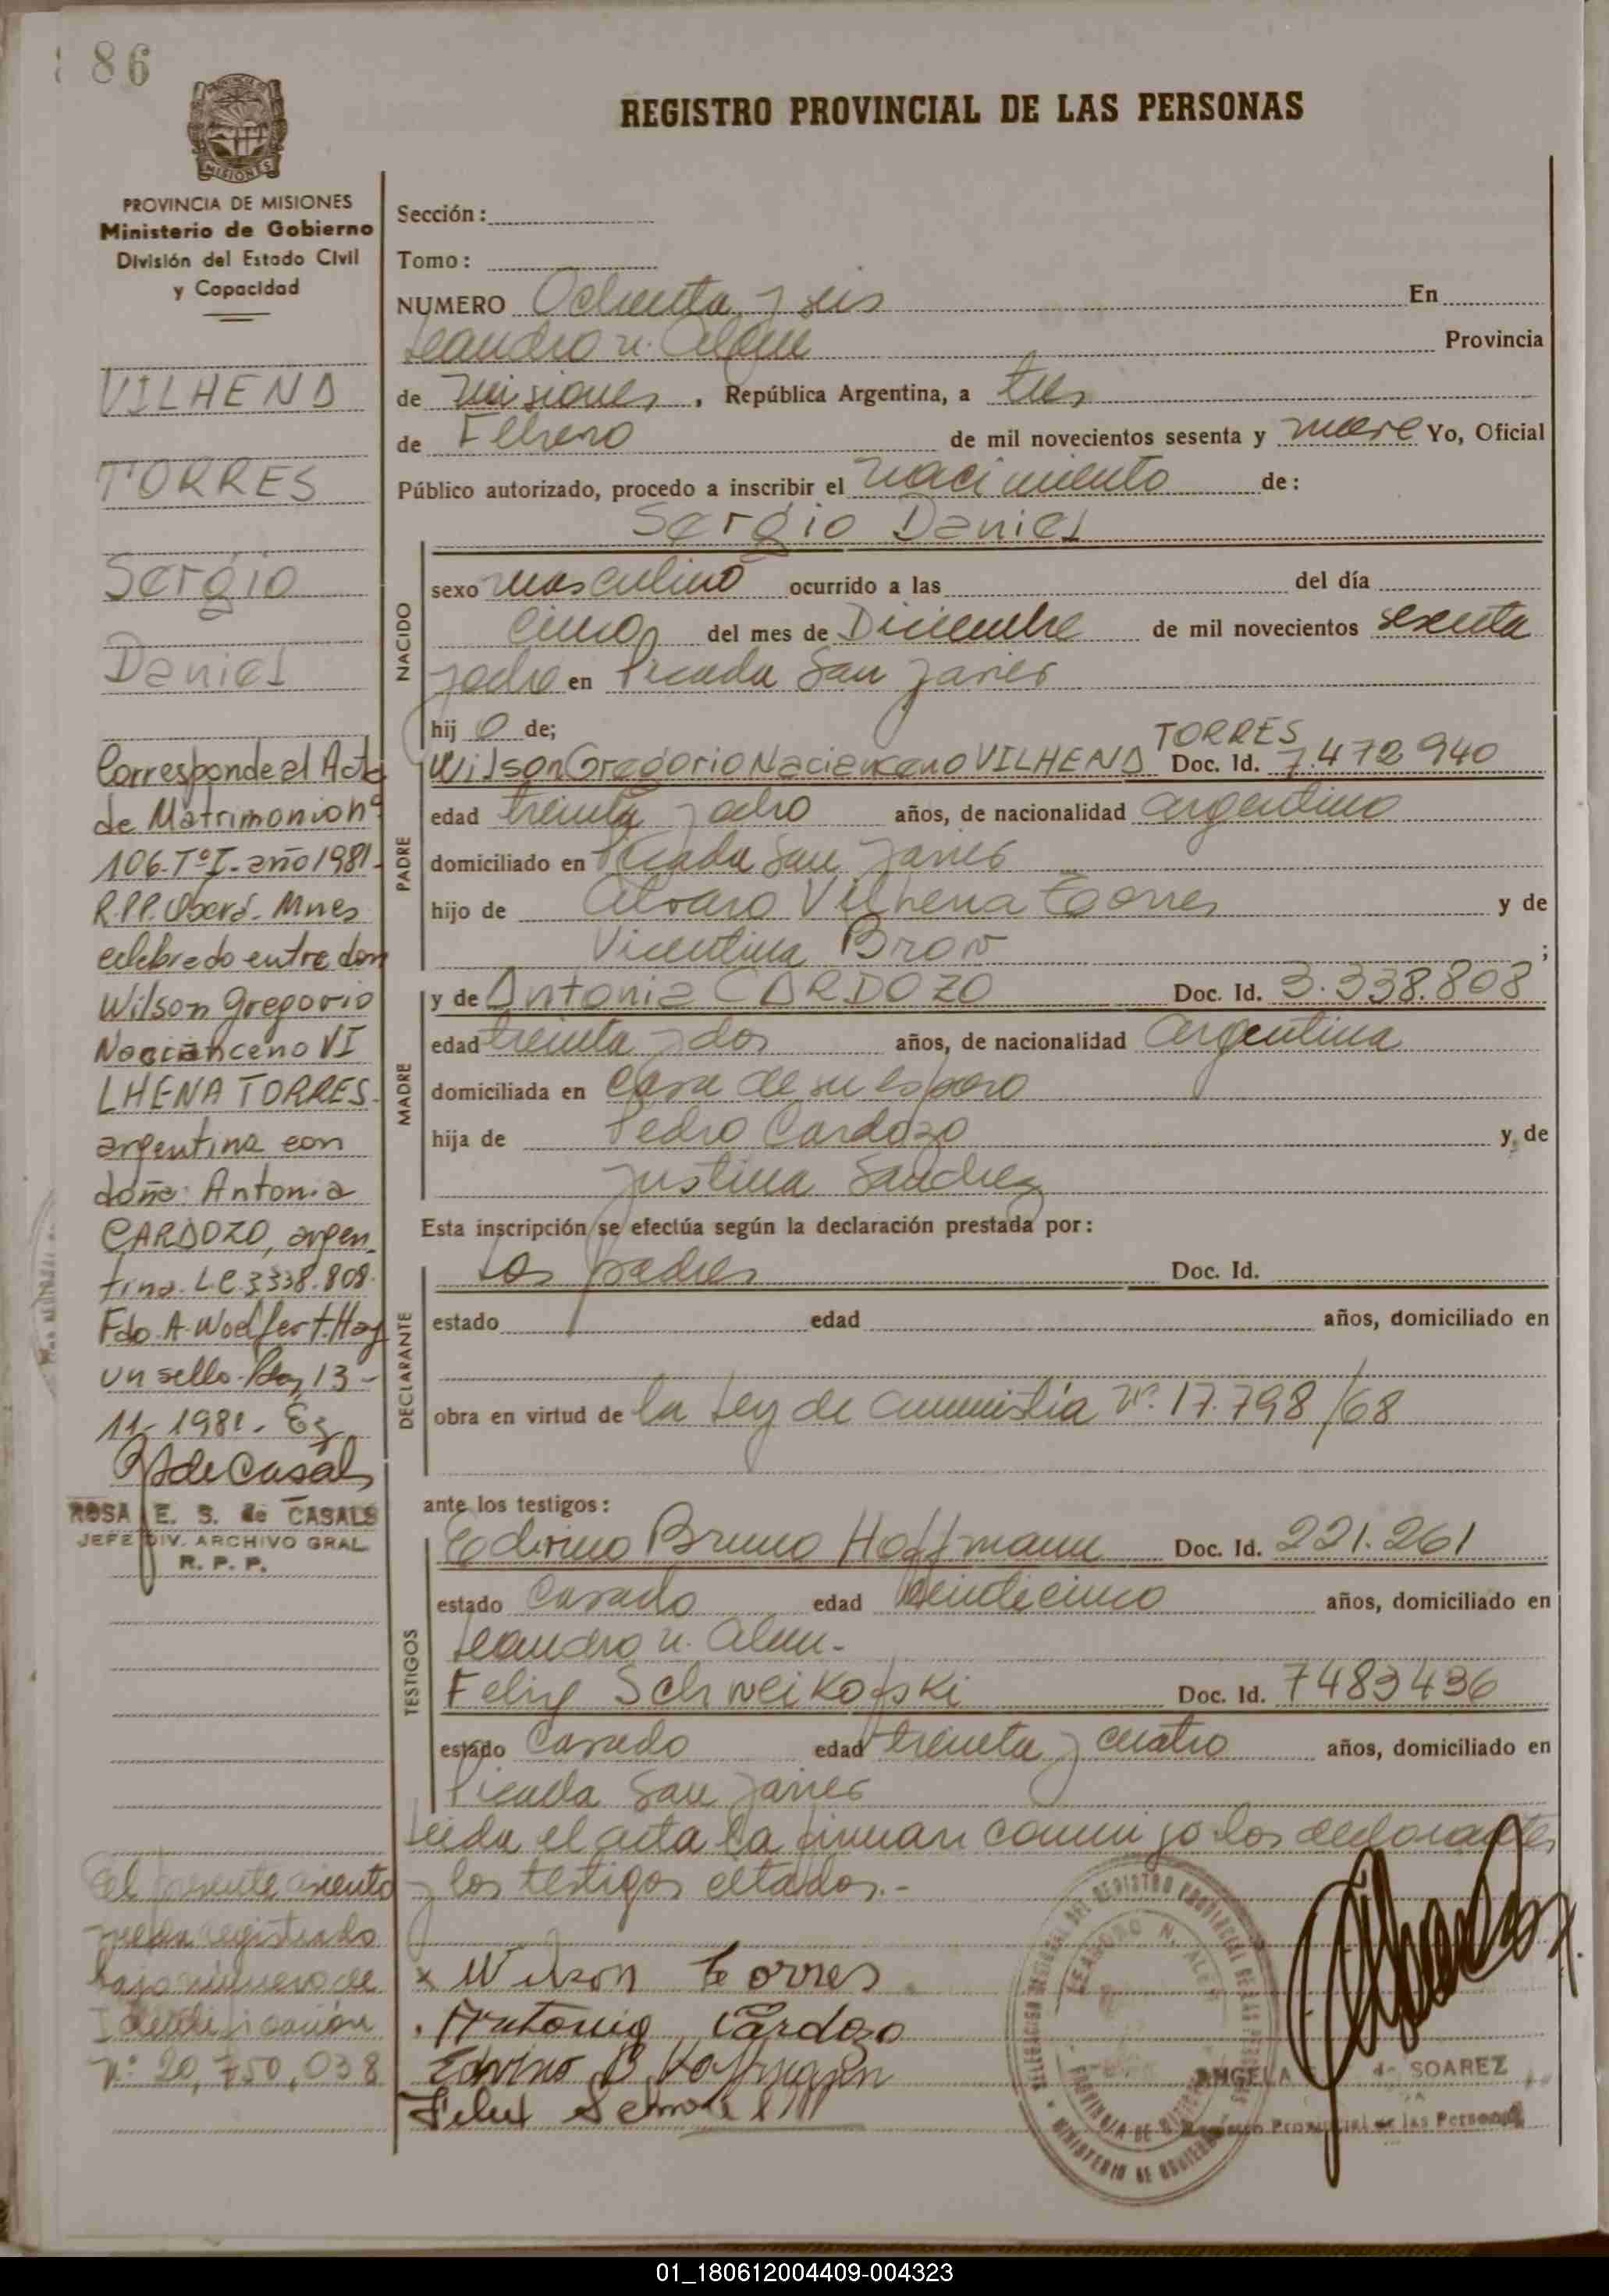 86
REGISTRO PROVINCIAL DE LAS PERSONAS
MISIONES
PROVINCIA DE MISIONES
Ministerio de Gobierno
División del Estado Civil
y Capacidad
VILHENA
TORRES
Sergio
Daniel
Corresponde al Acta
de Matrimonio nº
106-Tº I-año 1981-
R.P.P. Oberá-Mnes
celebredo entre don
Wilson Gregorio
Nacianceno VI
LHENA TORRES.
argentino con
doña: Antonia
CARDOZO, argen-
tina. L.C. 3338.808.
Fdo. A. Woelfert. Hay
un sello. Pdas, 13-
11-1981.
R de Casals
ROSA E. S. de CASALS
JEFE DIV. ARCHIVO GRAL.
R. P. P.
El presente asiento
queda registrado
bajo número de
Identificación
Nº: 20,750,038
Sección:
Tomo:
NUMERO Ochenta y seis En
Leandro N. Alem Provincia
de Misiones, República Argentina, a tres
de Febrero de mil novecientos sesenta y nueve Yo, Oficial
Público autorizado, procedo a inscribir el nacimiento de:
Sergio Daniel
NACIDO
sexo masculino ocurrido a las del día
cinco del mes de Diciembre de mil novecientos sesenta
y ocho en Picada San Javier
hij o de;
TORRES
PADRE
Wilson Gregorio Nacianceno VILHENA Doc. Id. 7.472940
edad treinta y ocho años, de nacionalidad argentino
domiciliado en Picada San Javier
hijo de Alvaro Vilhena Torres y de
Vicentina Bron ;
MADRE
y de Antonia CARDOZO Doc. Id. 3.338.808
edad treinta y dos años, de nacionalidad argentina
domiciliada en casa de su esposo
hija de Pedro Cardozo y de
Justina Sanchez
Esta inscripción se efectúa según la declaración prestada por:
DECLARANTE
Los padres Doc. Id.
estado edad años, domiciliado en
obra en virtud de la Ley de amnistia Nº. 17.798/68
ante los testigos:
TESTIGOS
Edvino Bruno Hoffmann Doc. Id. 221.261
estado Casado edad veinticinco años, domiciliado en
Leandro N. Alem.-
Felix Schweikofski Doc. Id. 7483436
estado Casado edad treinta y cuatro años, domiciliado en
Picada San Javier
Leida el acta la firman conmigo los declarantes
y los testigos citados.-
x Wilson Torres
Antonia Cardozo
Edvino B Hoffmann
Felix
ANGELA de SOAREZ
Registro Provincial de las Personas
LEANDRO N. ALEM
PROVINCIA DE MISIONES
MINISTERIO DE GOBIERNO
01_180612004409-004323